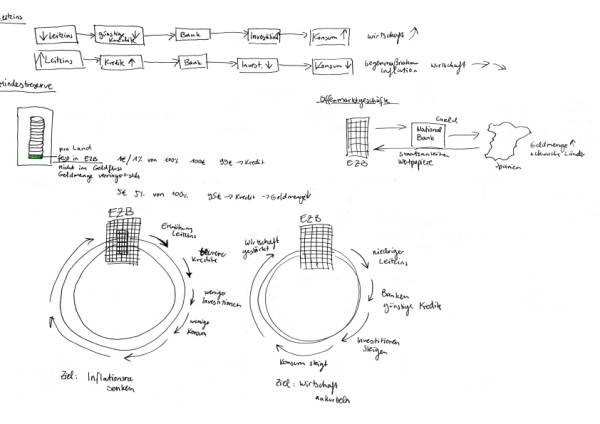 Leitzins
↓Leitzins
günstige Kredite ↓
Bank
Investition
Konsum ↑
Wirtschaft ↗
↑Leitzins
Kredite ↑
Bank
Invest. ↓
Konsum ↓
Gegenmaßnahme Inflation
Wirtschaft
Mindestreserve
Offenmarktgeschäfte
pro Land
fest in EZB
1€/1% von 100% 100€ 99€ → Kredit
nicht im Geldfluss
Geldmenge verringert sich
5€ 5% von 100% 95€ → Kredit → Geldmenge↓
EZB
Geld
National Bank
Staatsanleihen
Wertpapiere
Spanien
Geldmenge ↑
schwache Länder
EZB
Erhöhung Leitzins
teurere Kredite
wenige Investitionen
wenige Konsum
Ziel: Inflationsrate senken
EZB
niedriger Leitzins
Banken günstige Kredite
Investitionen steigen
Konsum steigt
Wirtschaft gestärkt
Ziel: Wirtschaft ankurbeln